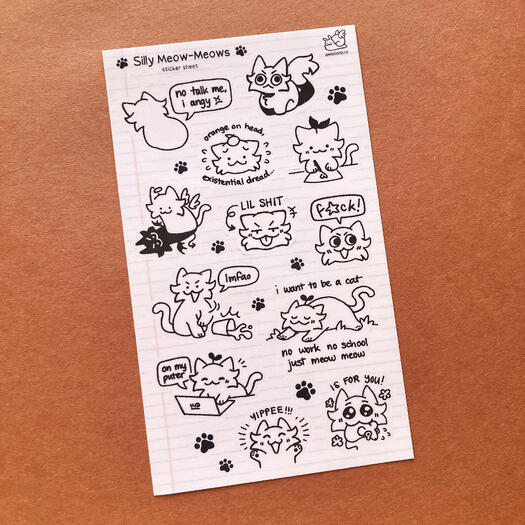 Silly Meow-Meows
sticker sheet
no talk me,
i angy
orange on head,
existential dread...
LIL SHIT
f☆ck!
lmfao
i want to be a cat
no work no school
just meow meow
on my
puter
IS FOR YOU!
YIPPEE!!!